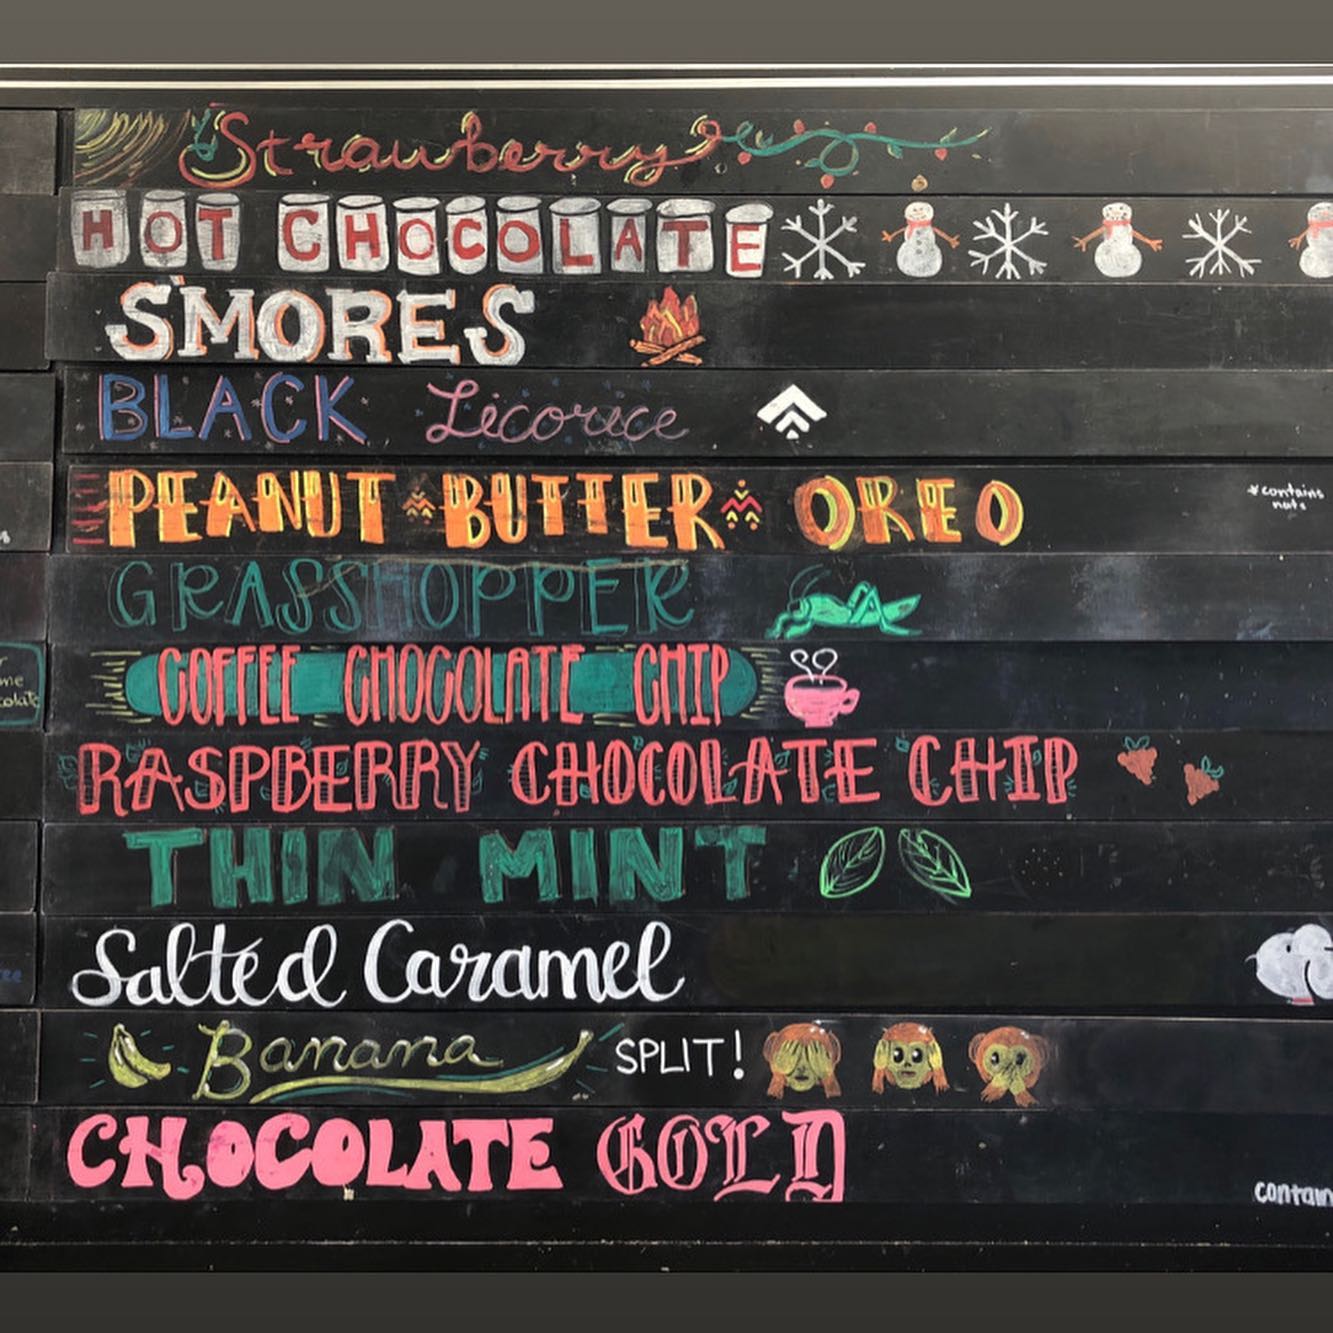 Strawberry
HOT CHOCOLATE
S'MORES
BLACK Licorice
PEANUT BUTTER OREO
*contains
nuts
GRASSHOPPER
COFFEE CHOCOLATE CHIP
RASPBERRY CHOCOLATE CHIP
THIN MINT
Salted Caramel
Banana SPLIT!
CHOCOLATE GOLD